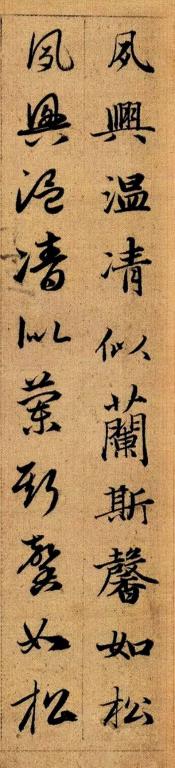 夙興温凊似蘭斯馨如松
夙興温凊似蘭斯馨如松